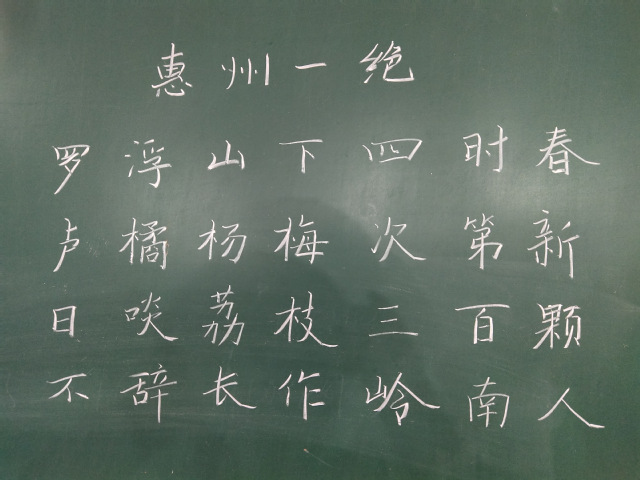 惠州一绝
罗浮山下四时春
卢橘杨梅次第新
日啖荔枝三百颗
不辞长作岭南人